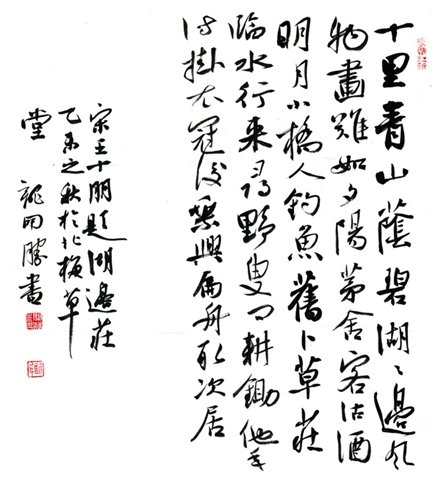 十里青山蔭碧湖〻邊風
物畫難如夕陽茅舍客沽酒
明月小橋人釣魚舊卜草莊
臨水行来尋野叟問耕鋤他年
待掛衣冠後乘興扁舟取次居
宋王十朋題湖邊莊
乙未之秋於北梅草
堂 龍開勝書